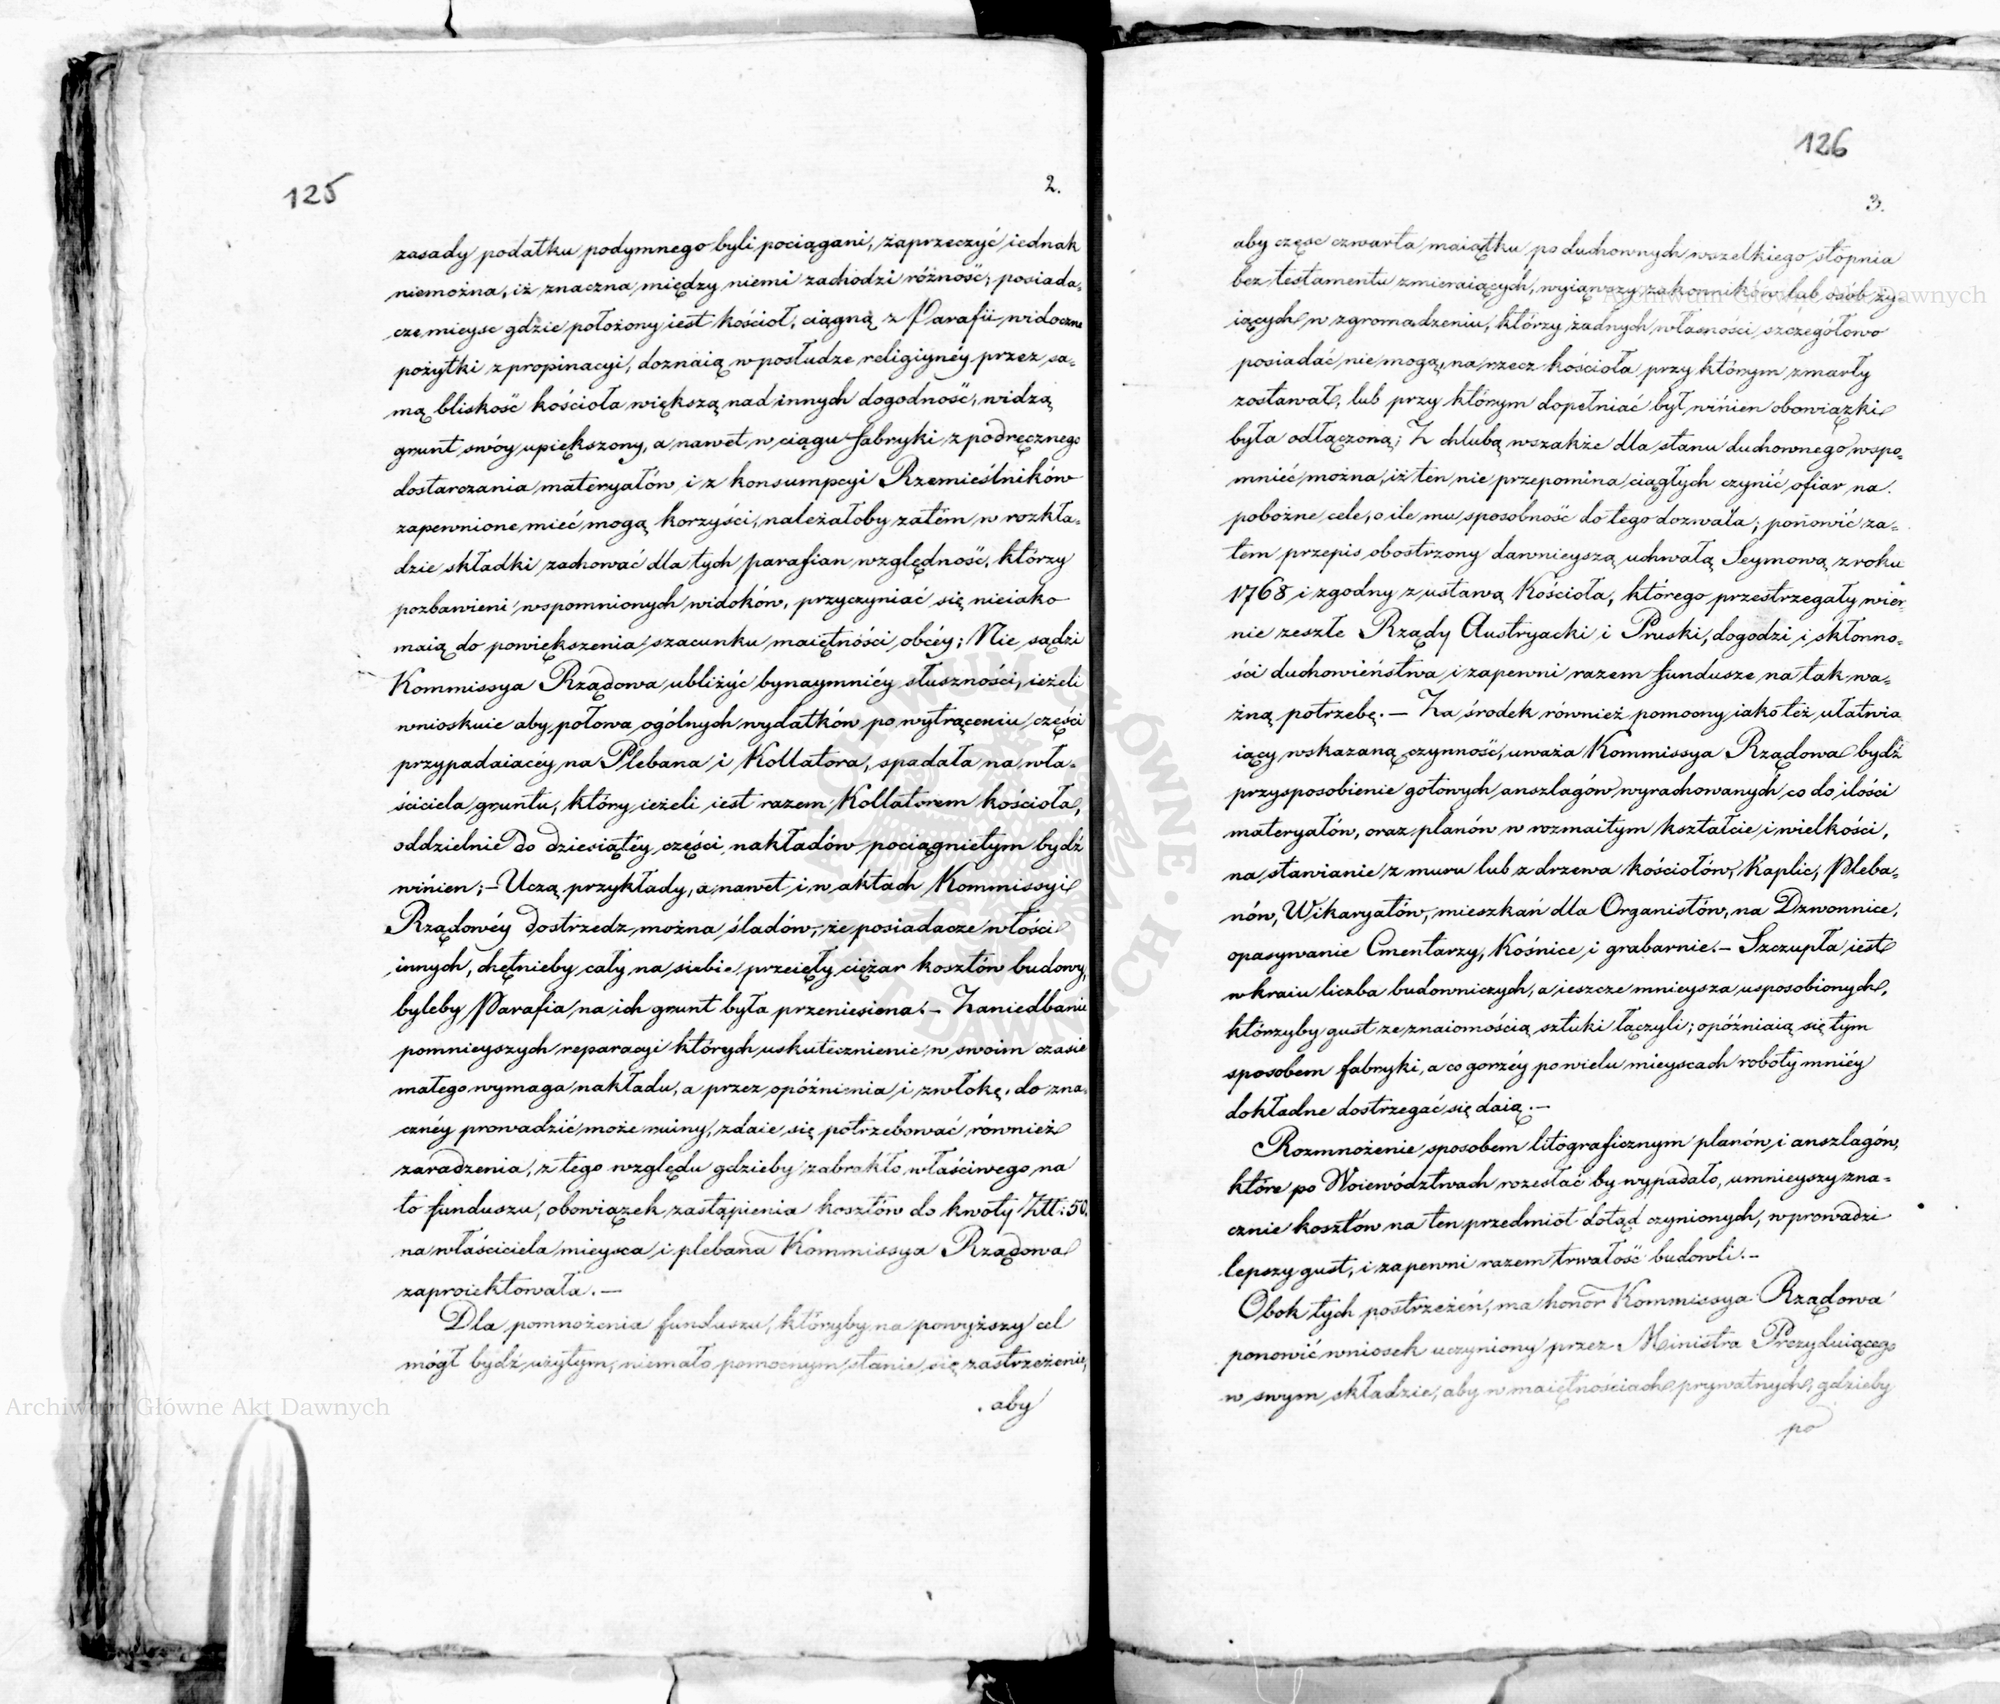 125
2.
zasady podatku podymnego byli pociągani, zaprzeczyć iednak
niemożna, iż znaczna między niemi zachodzi różność; posiada-
cze mieysc gdzie położony iest kościoł, ciągną z Parafii widoczne
pożytki z propinacyi, doznaią w posłudze religiynéy przez sa-
mą bliskość kościoła większą nad innych dogodność, widzą
grunt swóy upiększony, a nawet w ciągu fabryki z podręcznego
dostarczania materyałów i z konsumpcyi Rzemieślników
zapewnione mieć mogą korzyści, należałoby zatém w rozkła-
dzie składki zachować dla tych parafian względność, którzy
pozbawieni wspomnionych widoków, przyczyniać się nieiako
maią do powiększenia szacunku maiętności obcéy; Nie sądzi
Kommissya Rządowa ubliżyć bynaymniéy słuszności, ieżeli
wnioskuie aby połowa ogólnych wydatków po wytrąceniu części
przypadaiacéy na Plebana i Kollatora, spadała na wła-
ściciela gruntu, który ieżeli iest razem Kollatorem kościoła,
oddzielnie do dziesiątéy części nakładów pociągnietym bydź
winien; – Uczą przykłady, a nawet i w aktach Kommissyi
Rządowéy dostrzedz można śladów, że posiadacze włości
innych, chętnieby cały na siebie przeięły ciężar kosztów budowy,
byleby Parafia na ich grunt była przeniesiena. – Zaniedbanie
pomnieyszych reparacyi których uskutecznienie w swoim czasie
małego wymaga nakładu, a przez opóźnienia i zwłokę, do zna-
cznéy prowadzić może ruiny, zdaie się potrzebować również
zaradzenia, z tego względu gdzieby zabrakło właściwego na
to funduszu, obowiązek zastąpienia kosztów do kwoty Złł: 50.
na właściciela mieysca i plebana Kommissya Rządowa
zaproiektowała. —
Dla pomnożenia funduszu, któryby na powyższy cel
mógł bydź użytym, niemało pomocnym stanie się zastrzeżenie,
aby
126
3.
aby częsc czwarta maiątku po duchownych wszelkiego stopnia
bez testamentu zmieraiących, wyiąwszy zakonników lub osób ży-
iących w zgromadzeniu, którzy żadnych własności szczegółowo
posiadać nie mogą, na rzecz kościoła przy którym zmarły
zostawał, lub przy którym dopełniać był winien obowiązki
była odłączoną; Z chlubą wszakże dla stanu duchownego wspo-
mnieć można, iż ten nie przepomina ciągłych czynić ofiar na
pobożne cele, o ile mu sposobność do tego dozwala; ponowić za-
tem przepis obostrzony dawnieyszą uchwałą Seymową z roku
1768 i zgodny z ustawą Kościoła, którego przestrzegały wier-
nie zeszłe Rządy Austryacki i Pruski, dogodzi i skłonno-
ści duchowieństwa i zapewni razem fundusze na tak wa-
żną potrzebę. — Za środek również pomocny iako też ułatwia
iący wskazaną czynność, uważa Kommissya Rządowa bydź
przysposobienie gotowych anszlagów wyrachowanych co do ilości
materyałów, oraz planów w rozmaitym kształcie i wielkości,
na stawianie z muru lub z drzewa kościołów, Kaplic, Pleba-
nów, Wikaryatów, mieszkań dla Organistów, na Dzwonnice,
opasywanie Cmentarzy, Kośnice i grabarnie. – Szczupła iest
w kraiu liczba budowniczych, a ieszcze mnieysza usposobionych,
którzyby gust ze znaiomością sztuki łączyli; opóźniaią się tym
sposobem fabryki, a co gorzéy po wielu mieyscach roboty mniéy
dokładne dostrzegać się daią. —
Rozmnożenie sposobem litograficznym planów i anszlagów,
które po Woiewództwach rozesłać by wypadało, umnieyszy zna-
cznie kosztów na ten przedmiot dotąd czynionych, wprowadzi
lepszy gust, i zapewni razem trwałość budowli. –
Obok tych postrzeżeń, ma honor Kommissya Rządowa
ponowić wniosek uczyniony przez Ministra Prezyduiącego
w swym składzie, aby w maiętnościach prywatnych, gdzieby
po
Archiwum Główne Akt Dawnych
Archiwum Główne Akt Dawnych